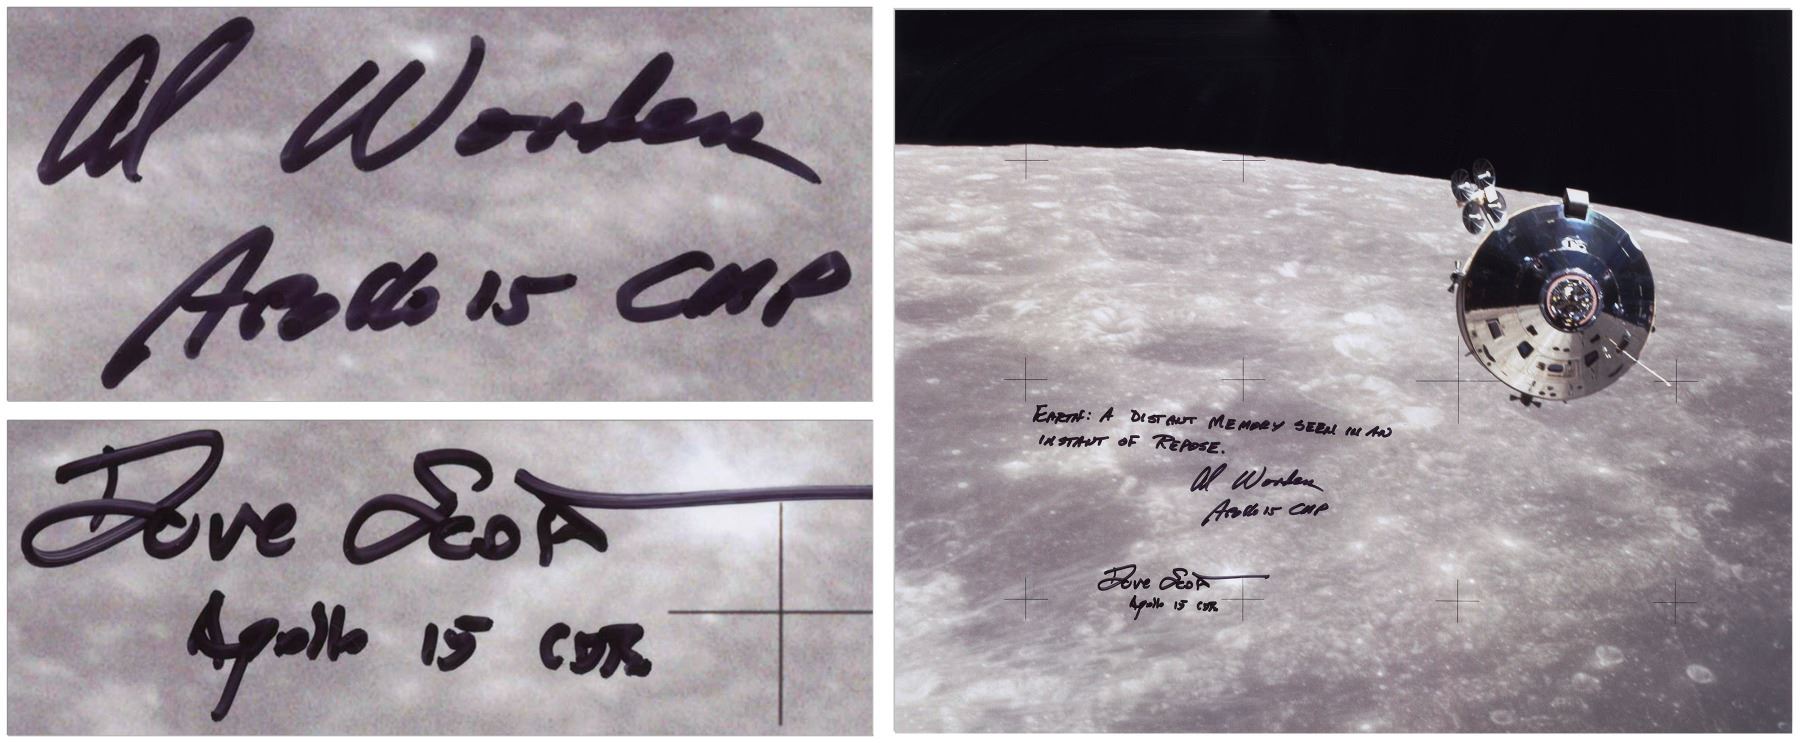 Al Worden
Apollo 15 CMP
Dave Scott
Apollo 15 CDR
EARTH: A DISTANT MEMORY SEEN IN AN
INSTANT OF REPOSE.
Al Worden
Apollo 15 CMP
Dave Scott
Apollo 15 CDR